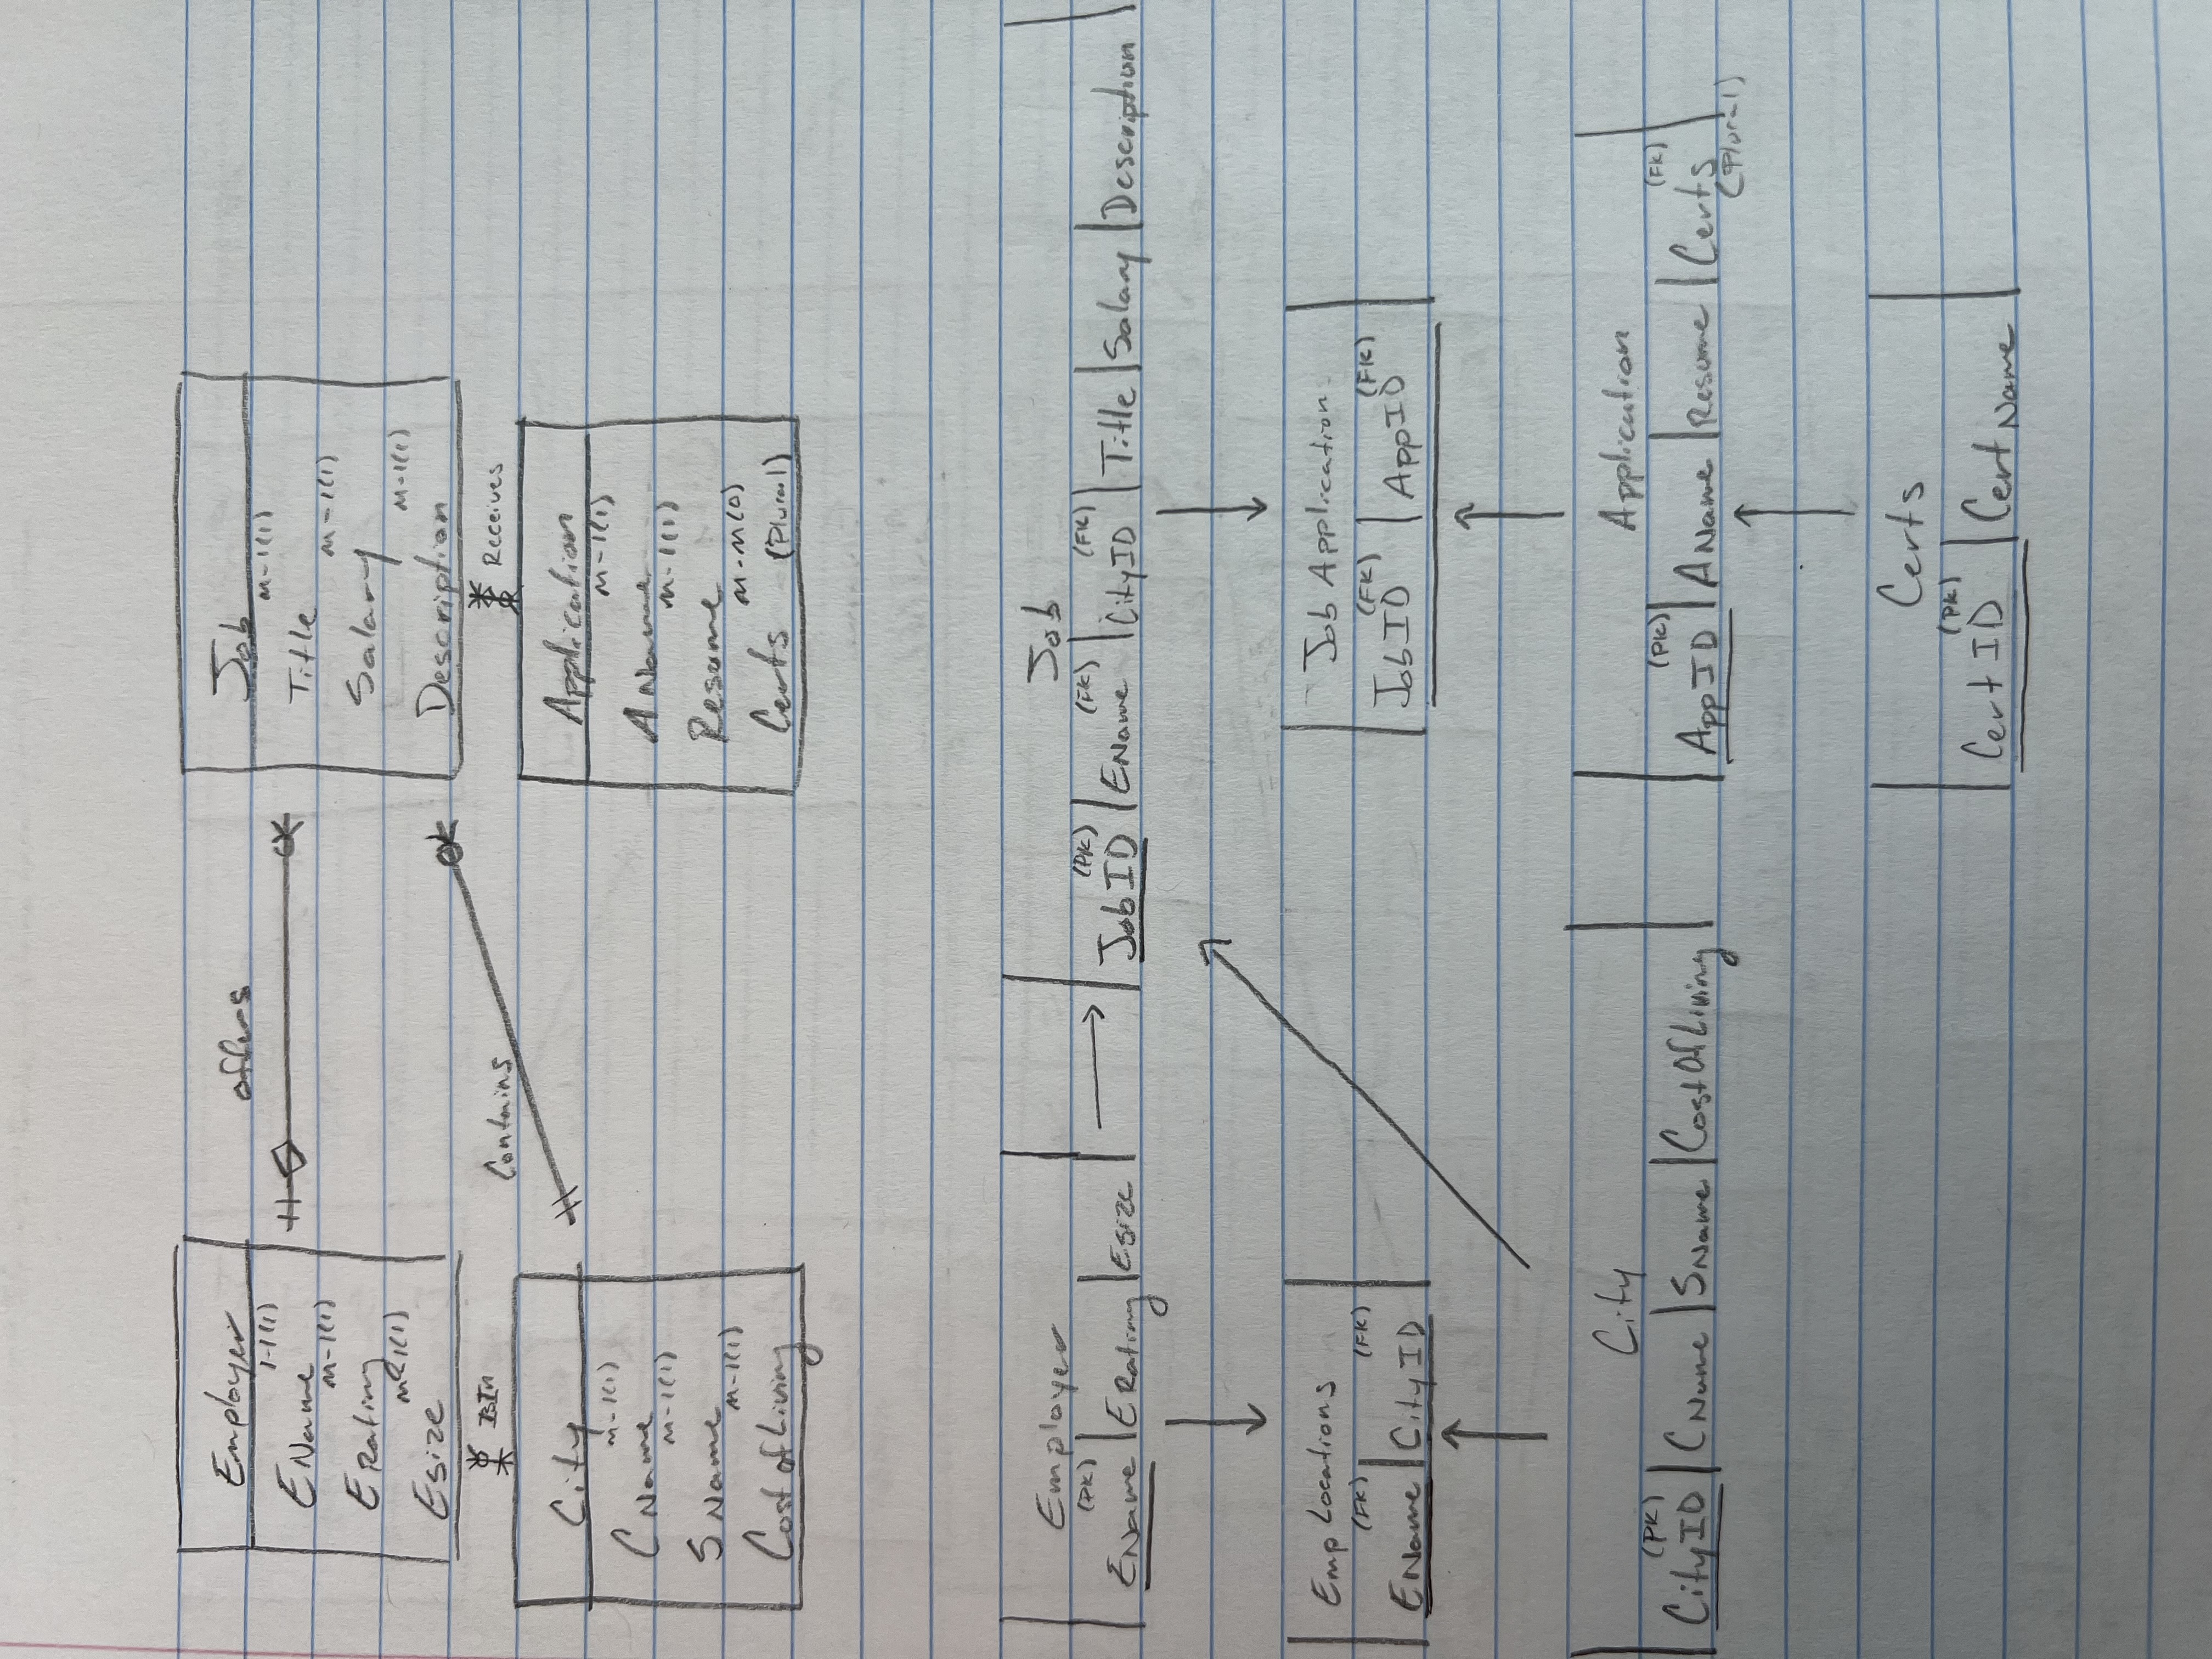 Employer
1-1(1)
EName
M-1(1)
ERating
M-1(1)
Esize
offers
Job
M-1(1)
Title
M-1(1)
Salary
M-1(1)
Description
IsIn
Contains
Receives
City
M-1(1)
CName
M-1(1)
SName
M-1(1)
Cost of Living
Application
M-1(1)
AName
M-1(1)
Resume
M-M(0)
Certs (Plural)
Employer
(PK)
EName ERating Esize
Job
(PK) (FK) (FK)
JobID EName CityID Title Salary Description
Emp Locations
(FK) (FK)
EName CityID
Job Application
(FK) (FK)
JobID AppID
City
(PK)
CityID CName SName CostOfLiving
Application
(PK) (FK)
AppID AName Resume Certs
(Plural)
Certs
(PK)
CertID CertName